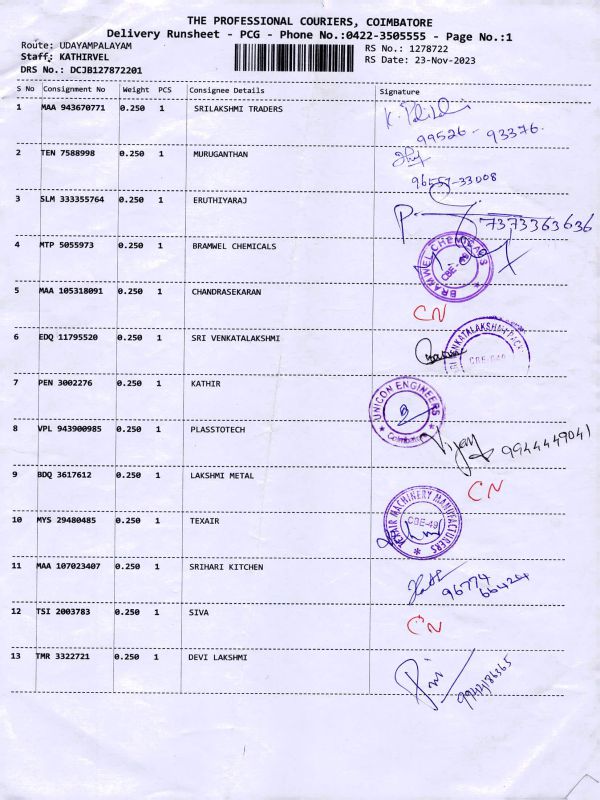 THE PROFESSIONAL COURIERS, COIMBATORE
Delivery Runsheet - PCG - Phone No.:0422-3505555 - Page No.:1
Route: UDAYAMPALAYAM
RS No.: 1278722
Staff: KATHIRVEL
RS Date: 23-Nov-2023
DRS No.: DCJB127872201
S No Consignment No Weight PCS Consignee Details Signature
1 MAA 943670771 0.250 1 SRILAKSHMI TRADERS
99526 - 93376.
2 TEN 7588998 0.250 1 MURUGANTHAN
96557-33008
3 SLM 333355764 0.250 1 ERUTHIYARAJ
7373363636
4 MTP 5055973 0.250 1 BRAMWEL CHEMICALS
BRAMWEL CHEMICALS
CBE-49
5 MAA 105318091 0.250 1 CHANDRASEKARAN
CN
6 EDQ 11795520 0.250 1 SRI VENKATALAKSHMI
7 PEN 3002276 0.250 1 KATHIR
UNICON ENGINEERS
Coimbatore
8 VPL 943900985 0.250 1 PLASSTOTECH
Vijay 9944449041
9 BDQ 3617612 0.250 1 LAKSHMI METAL
CN
10 MYS 29480485 0.250 1 TEXAIR
TEXAIR MACHINERY MANUFACTURERS
CBE-49
11 MAA 107023407 0.250 1 SRIHARI KITCHEN
96774
66424
12 TSI 2003783 0.250 1 SIVA
CN
13 TMR 3322721 0.250 1 DEVI LAKSHMI